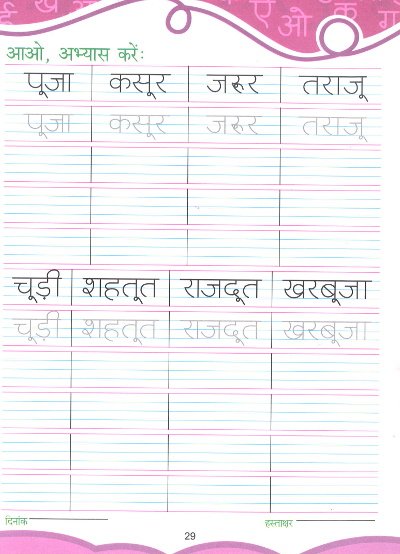 ई ख अ ए ओ क ग
आओ, अभ्यास करेंः
पूजा कसूर जरूर तराजू
पूजा कसूर जरूर तराजू
चूड़ी शहतूत राजदूत खरबूजा
चूड़ी शहतूत राजदूत खरबूजा
दिनांक हस्ताक्षर
29